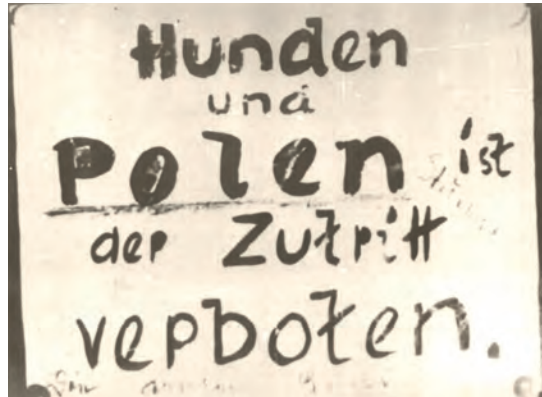 Hunden
und
Polen ist
der Zutritt
verboten.